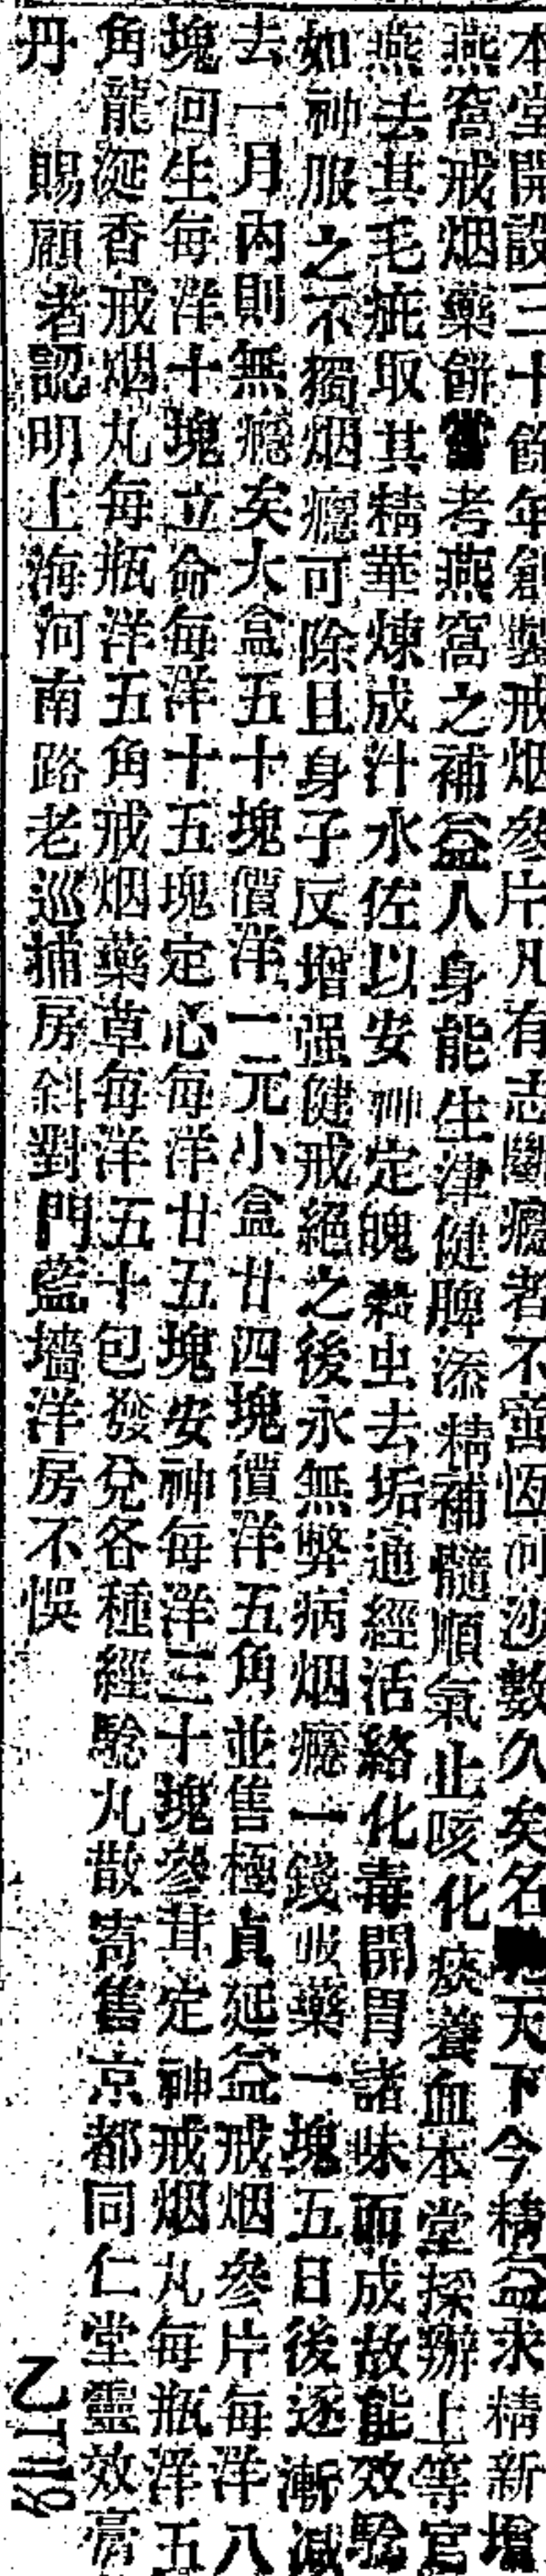 本堂開設三十餘年創製戒烟參片凡有志斷癮者不啻恆河沙數久矣名馳天下今精益求精新增
燕窩戒烟藥餅嘗考燕窩之補益人身能生津健脾添精補髓順氣止咳化痰養血本堂採辦上等官
燕去其毛疵取其精華煉成汁水佐以安神定魄殺虫去垢通經活絡化毒開胃諸味而成故能效驗
如神服之不獨烟癮可除且身子反增强健戒絕之後永無弊病烟癮一錢服藥一塊五日後逐漸減
去一月內則無癮矣大盒五十塊價洋一元小盒廿四塊價洋五角並售極眞延益戒烟參片每洋八
塊回生每洋十塊立命每洋十五塊定心每洋廿五塊安神每洋三十塊參茸定神戒烟丸每瓶洋五
角龍涎香戒烟丸每瓶洋五角戒烟藥草每洋五十包發兌各種經驗丸散寄售京都同仁堂靈效膏
丹 賜顧者認明上海河南路老巡捕房斜對門藍墻洋房不悞